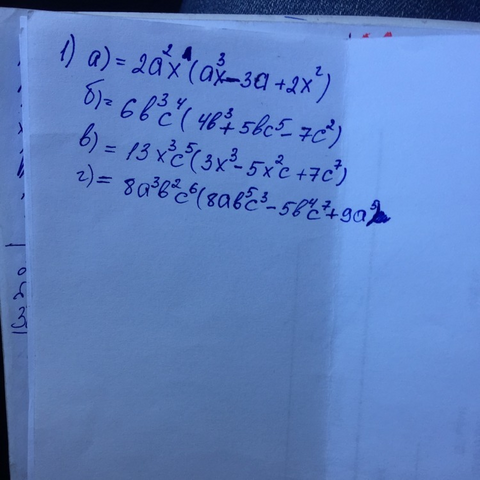 1) а) = 2a²x(ax³ - 3a + 2x²)
б) = 6b³c⁴(4b³ + 5bc⁵ - 7c²)
в) = 13x³c⁵(3x³ - 5x²c + 7c⁷)
г) = 8a³b²c⁶(8ab⁵c³ - 5b⁴c⁷ + 9a⁹